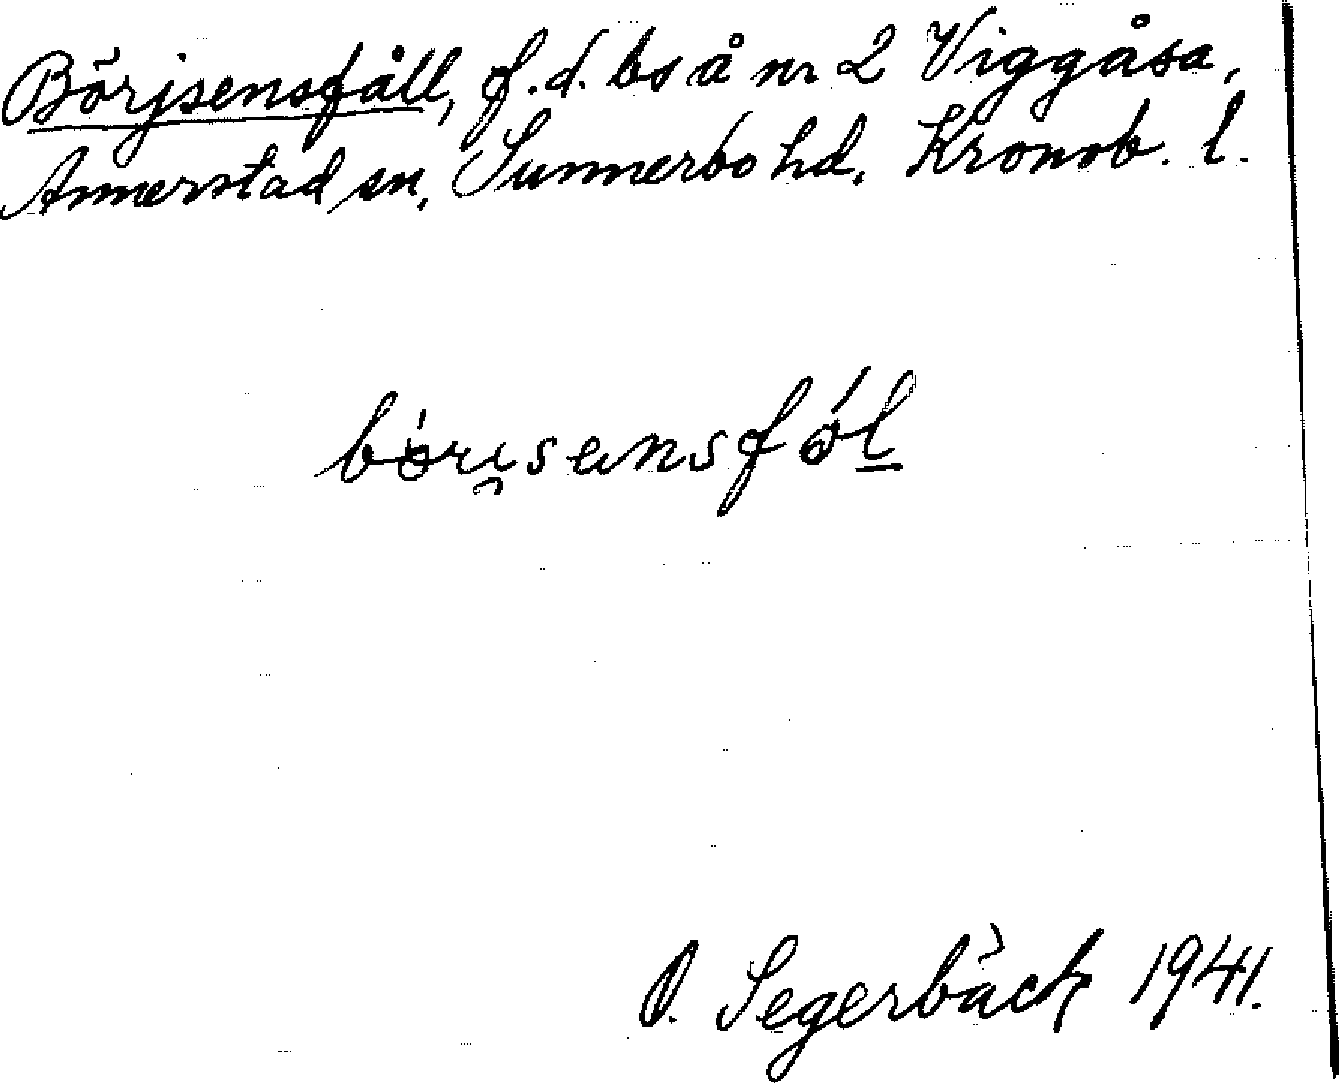 Börjsensfåll, f.d. bs å nr 2 Viggåsa,
Annerstad sn, Sunnerbo hd, Kronob. l.
börı̯sensfól
B. Segerbäck 1941.